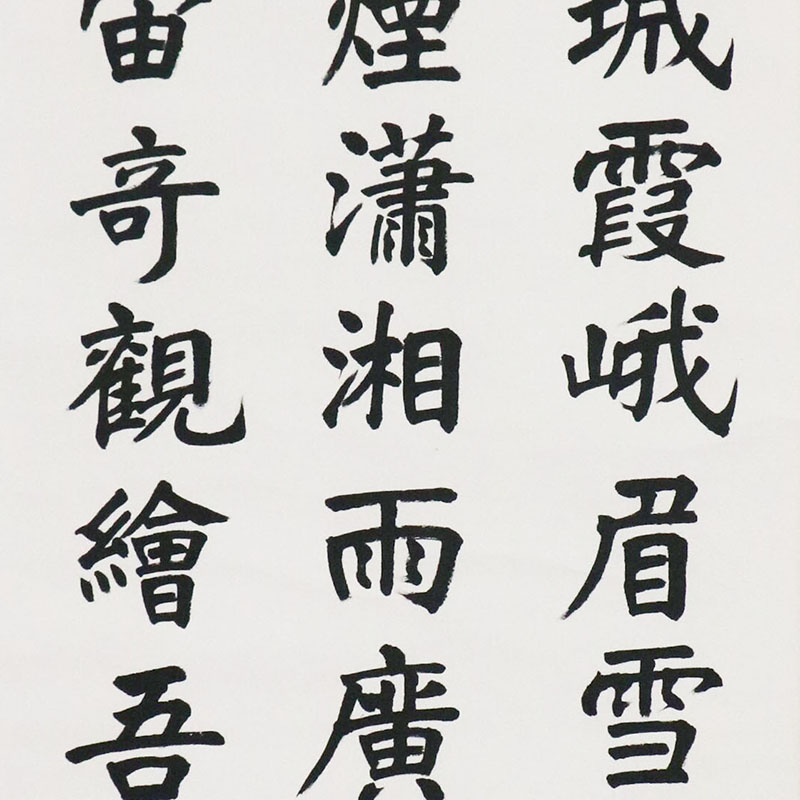 城霞峨眉雪
煙瀟湘雨廣
宙奇觀繪吾